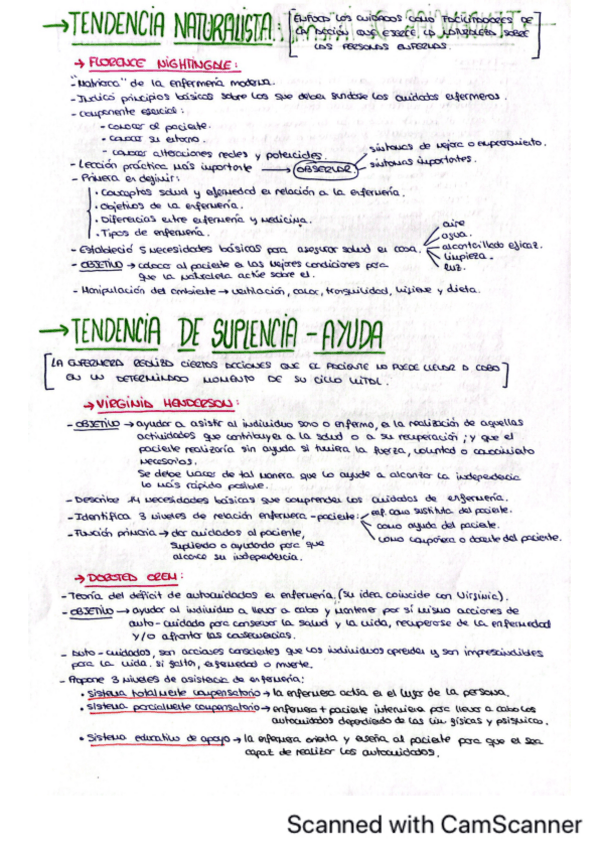 →TENDENCIA NATURALISTA: [ENFOCA LOS CUIDADOS COMO FACILITADORES DE
LA ACCIÓN QUE EJERCE LA NATURALEZA SOBRE
LAS PERSONAS ENFERMAS.]
→ FLORENCE NIGHTINGALE:
- "Matriarca" de la enfermería moderna.
- Indicó principios básicos sobre los que deben fundarse los cuidados enfermeros.
- Componente esencial:
- conocer al paciente.
- conocer su entorno.
- conocer alteraciones reales y potenciales.
- Lección práctica más importante → OBSERVAR
síntomas de mejora o empeoramiento.
síntomas importantes.
- Primera en definir:
· Conceptos salud y enfermedad en relación a la enfermería.
· Objetivos de la enfermería.
· Diferencias entre enfermería y medicina.
· Tipos de enfermería.
- Estableció 5 necesidades básicas para asegurar salud en casa.
aire
agua.
alcantarillado eficaz.
limpieza.
luz.
- OBJETIVO → colocar al paciente en las mejores condiciones para
que la naturaleza actúe sobre él.
- Manipulación del ambiente → ventilación, calor, tranquilidad, higiene y dieta.
→TENDENCIA DE SUPLENCIA - AYUDA
[LA ENFERMERA REALIZA CIERTAS ACCIONES QUE EL PACIENTE NO PUEDE LLEVAR A CABO
EN UN DETERMINADO MOMENTO DE SU CICLO VITAL.]
→ VIRGINIA HENDERSON:
- OBJETIVO → ayudar a asistir al individuo sano o enfermo, en la realización de aquellas
actividades que contribuyen a la salud o a su recuperación; y que el
paciente realizaría sin ayuda si tuviera la fuerza, voluntad o conocimiento
necesarios.
Se debe hacer de tal manera que lo ayude a alcanzar la independencia
lo más rápido posible.
- Describe 14 necesidades básicas que comprenden los cuidados de enfermería.
- Identifica 3 niveles de relación enfermera - paciente:
enf. como sustituta del paciente.
como ayuda del paciente.
como compañera o del paciente.
- Función primaria → dar cuidados al paciente,
supliendo o ayudando para que
alcance su independencia.
→ DOROTEA OREM:
- Teoría del déficit de autocuidados en enfermería. (su idea coincide con Virginia).
- OBJETIVO → ayudar al individuo a llevar a cabo y mantener por sí mismo acciones de
auto-cuidado para conservar la salud y la vida, recuperarse de la enfermedad
y/o afrontar las consecuencias.
- Auto-cuidados, son acciones conscientes que los individuos aprenden y son imprescindibles
para la vida. si faltan, enfermedad o muerte.
- Propone 3 niveles de asistencia de enfermería:
· sistema totalmente compensatorio → la enfermera actúa en el lugar de la persona.
· sistema parcialmente compensatorio → enfermera + paciente intervienen para llevar a cabo los
autocuidados dependiendo de las lim físicas y psíquicas.
· Sistema educativo de apoyo → la enfermera orienta y enseña al paciente para que él sea
capaz de realizar los autocuidados.
Scanned with CamScanner